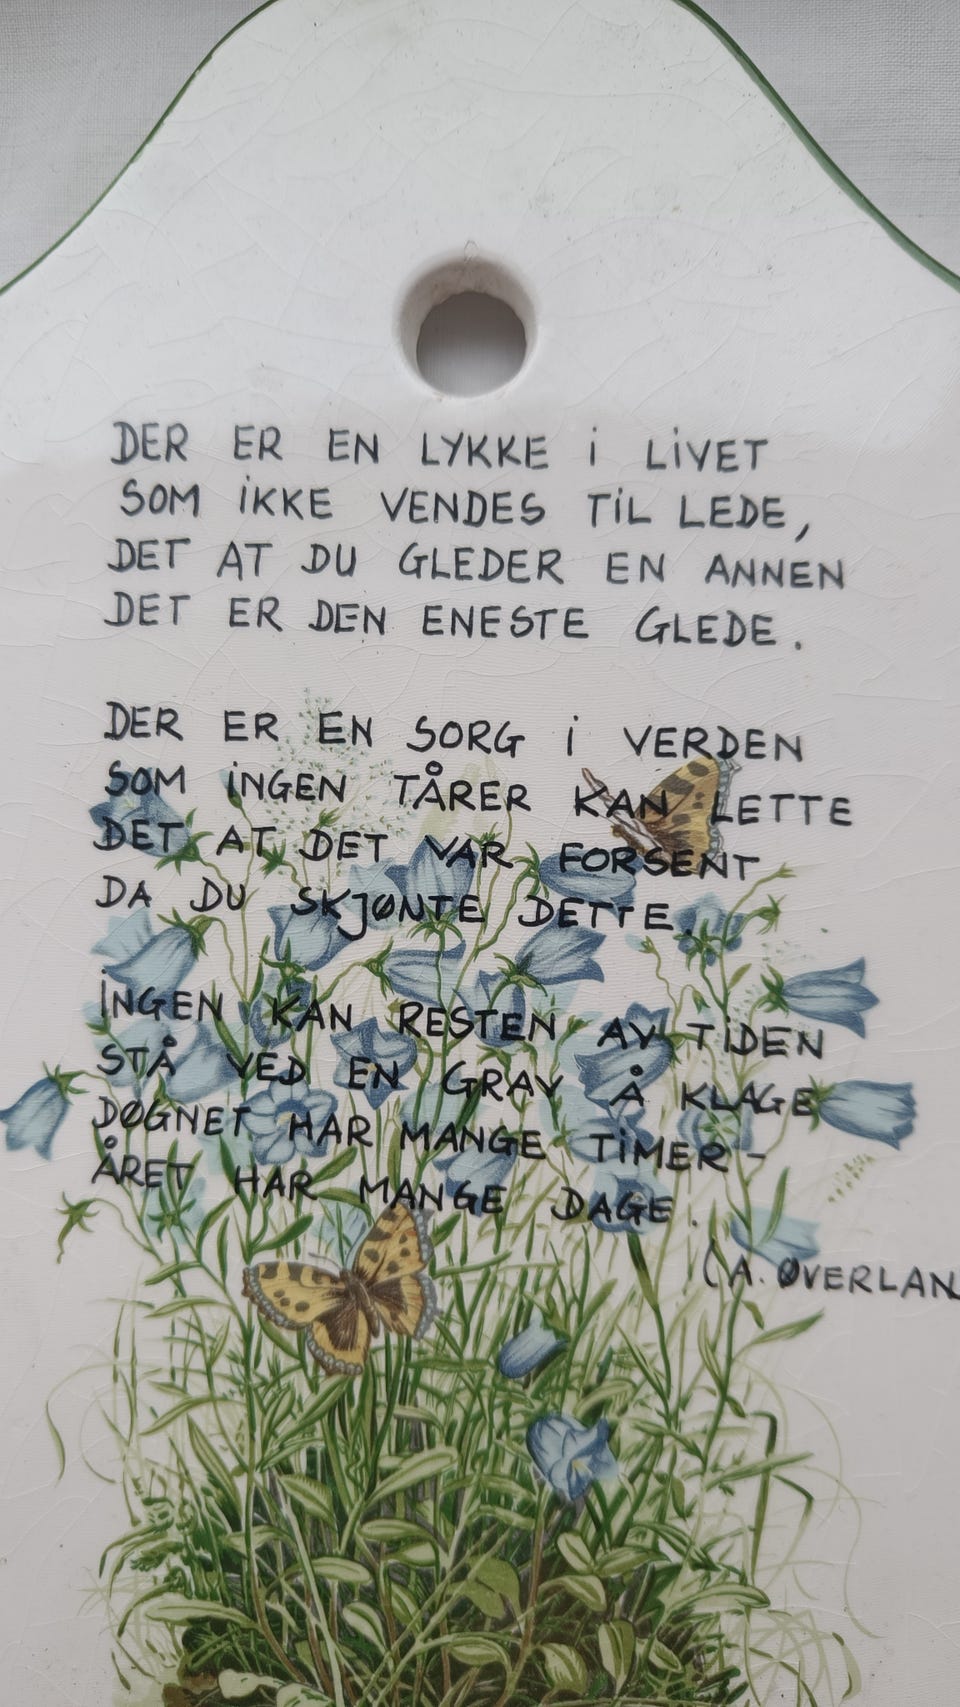 DER ER EN LYKKE i LiVET
SOM iKKE VENDES TiL LEDE,
DET AT DU GLEDER EN ANNEN
DET ER DEN ENESTE GLEDE.
DER ER EN SORG i VERDEN
SOM iNGEN TÅRER KAN LETTE
DET AT DET VAR FORSENT
DA DU SKJØNTE DETTE.
iNGEN KAN RESTEN AV TiDEN
STÅ VED EN GRAV Å KLAGE
DØGNET HAR MANGE TiMER -
ÅRET HAR MANGE DAGE.
(A. ØVERLAN